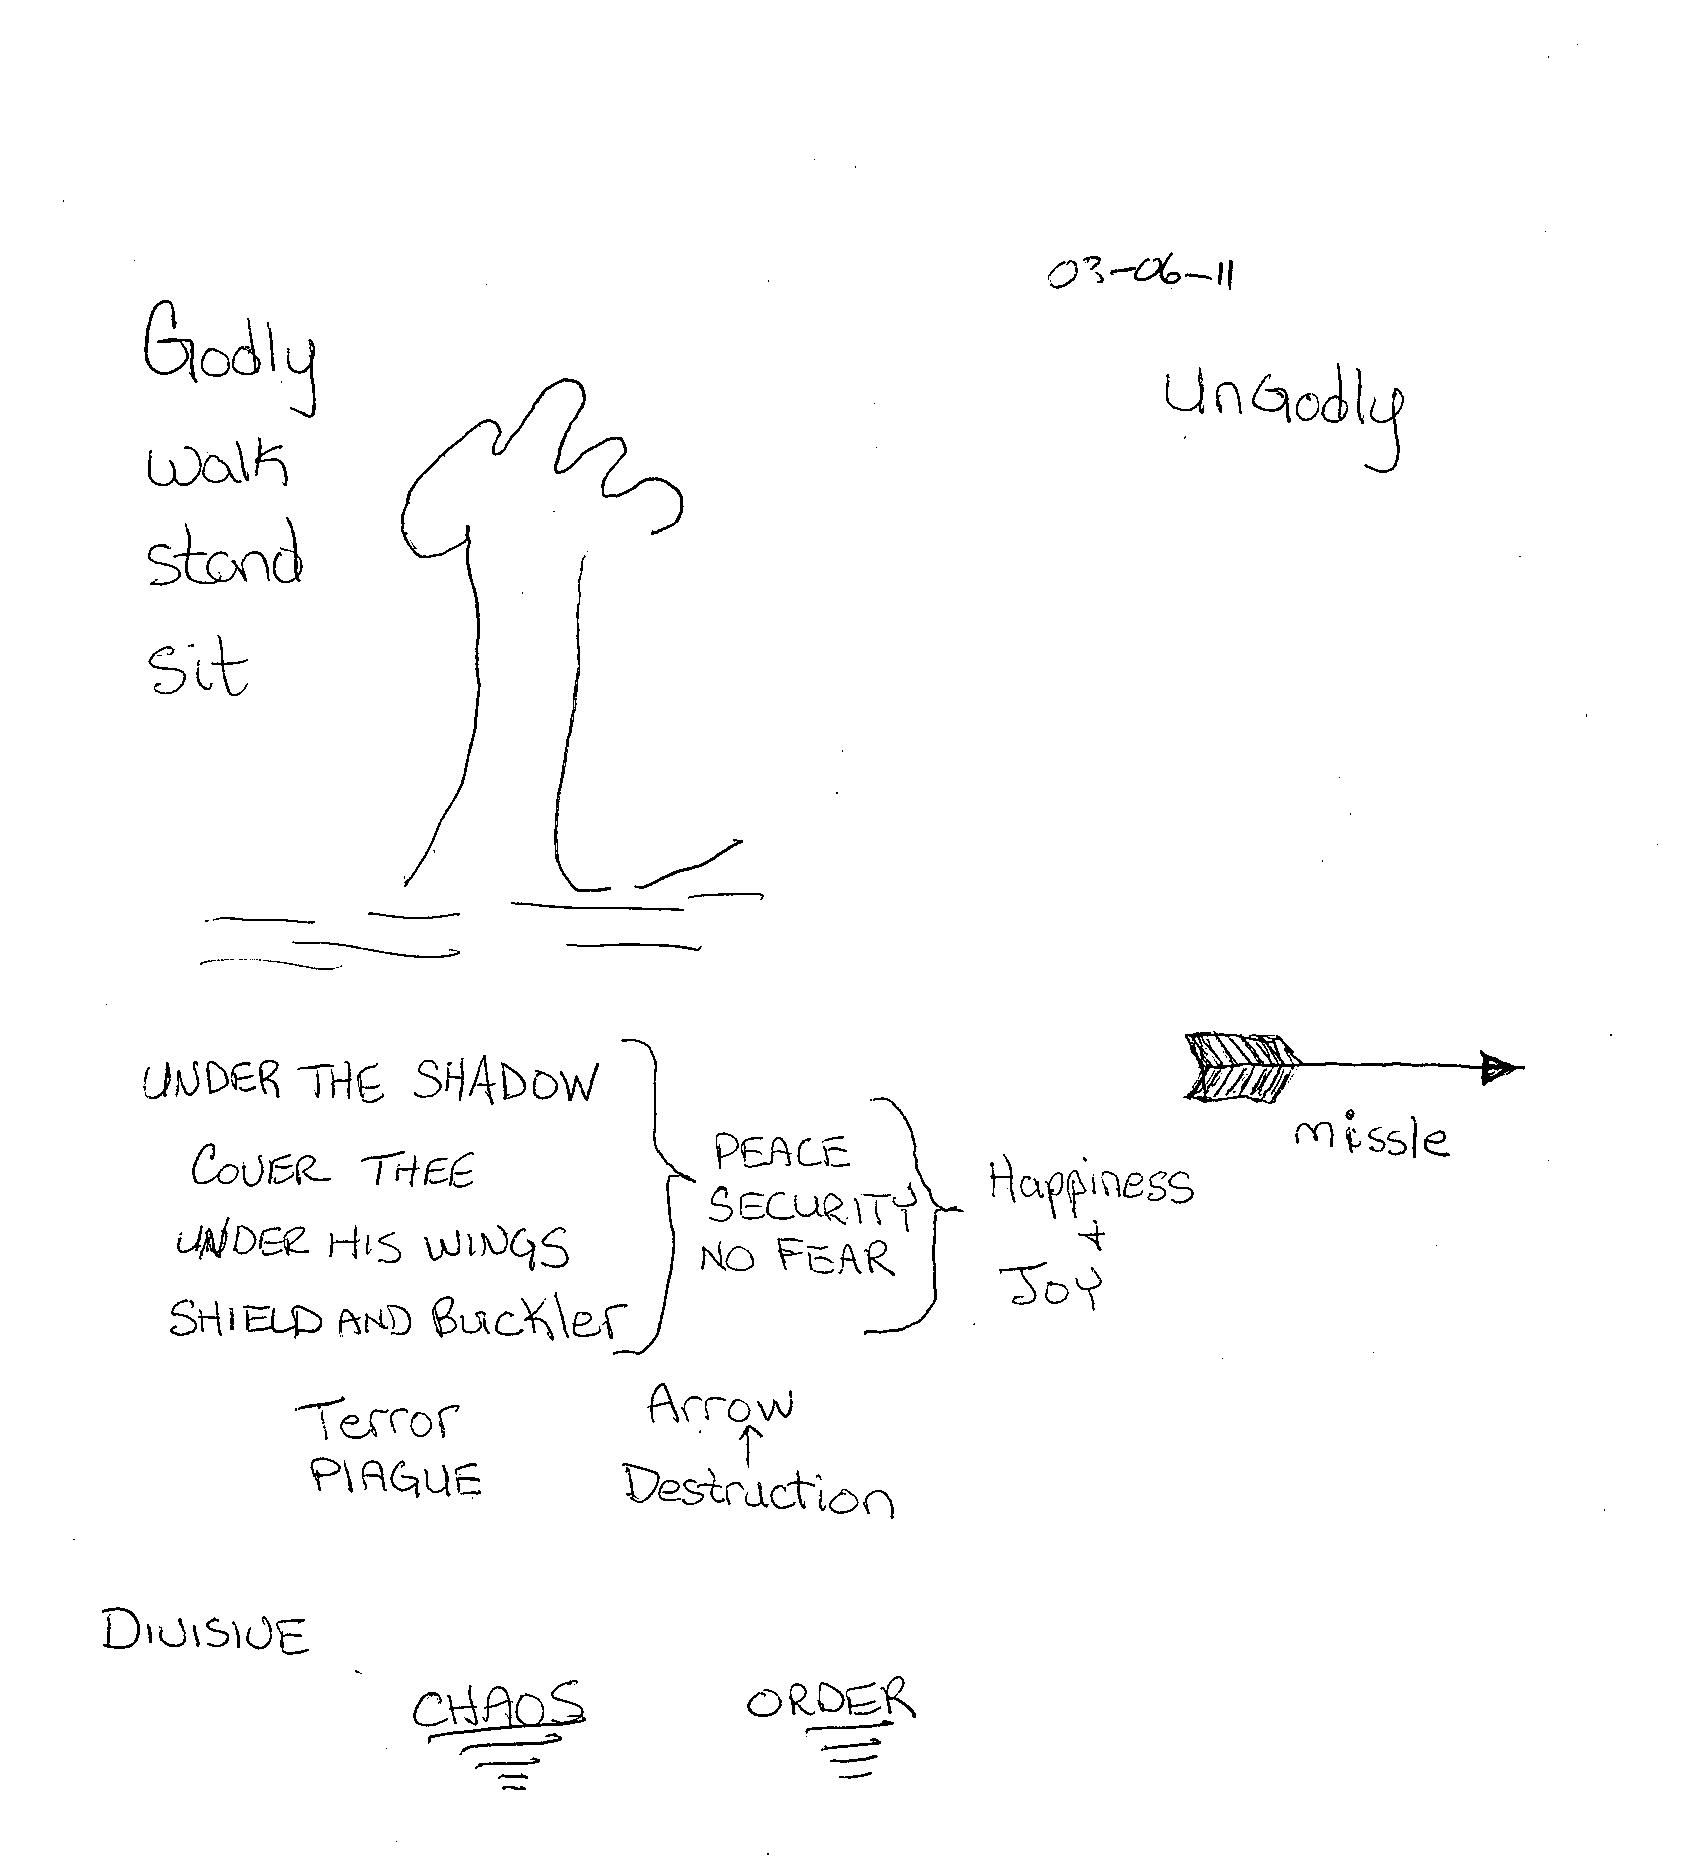 03-06-11
Godly
UnGodly
walk
stand
sit
UNDER THE SHADOW
COVER THEE
UNDER HIS WINGS
SHIELD AND Buckler
PEACE
SECURITY
NO FEAR
Happiness
+
Joy
missle
Terror
PlAGUE
Arrow
Destruction
DIVISIVE
CHAOS
ORDER